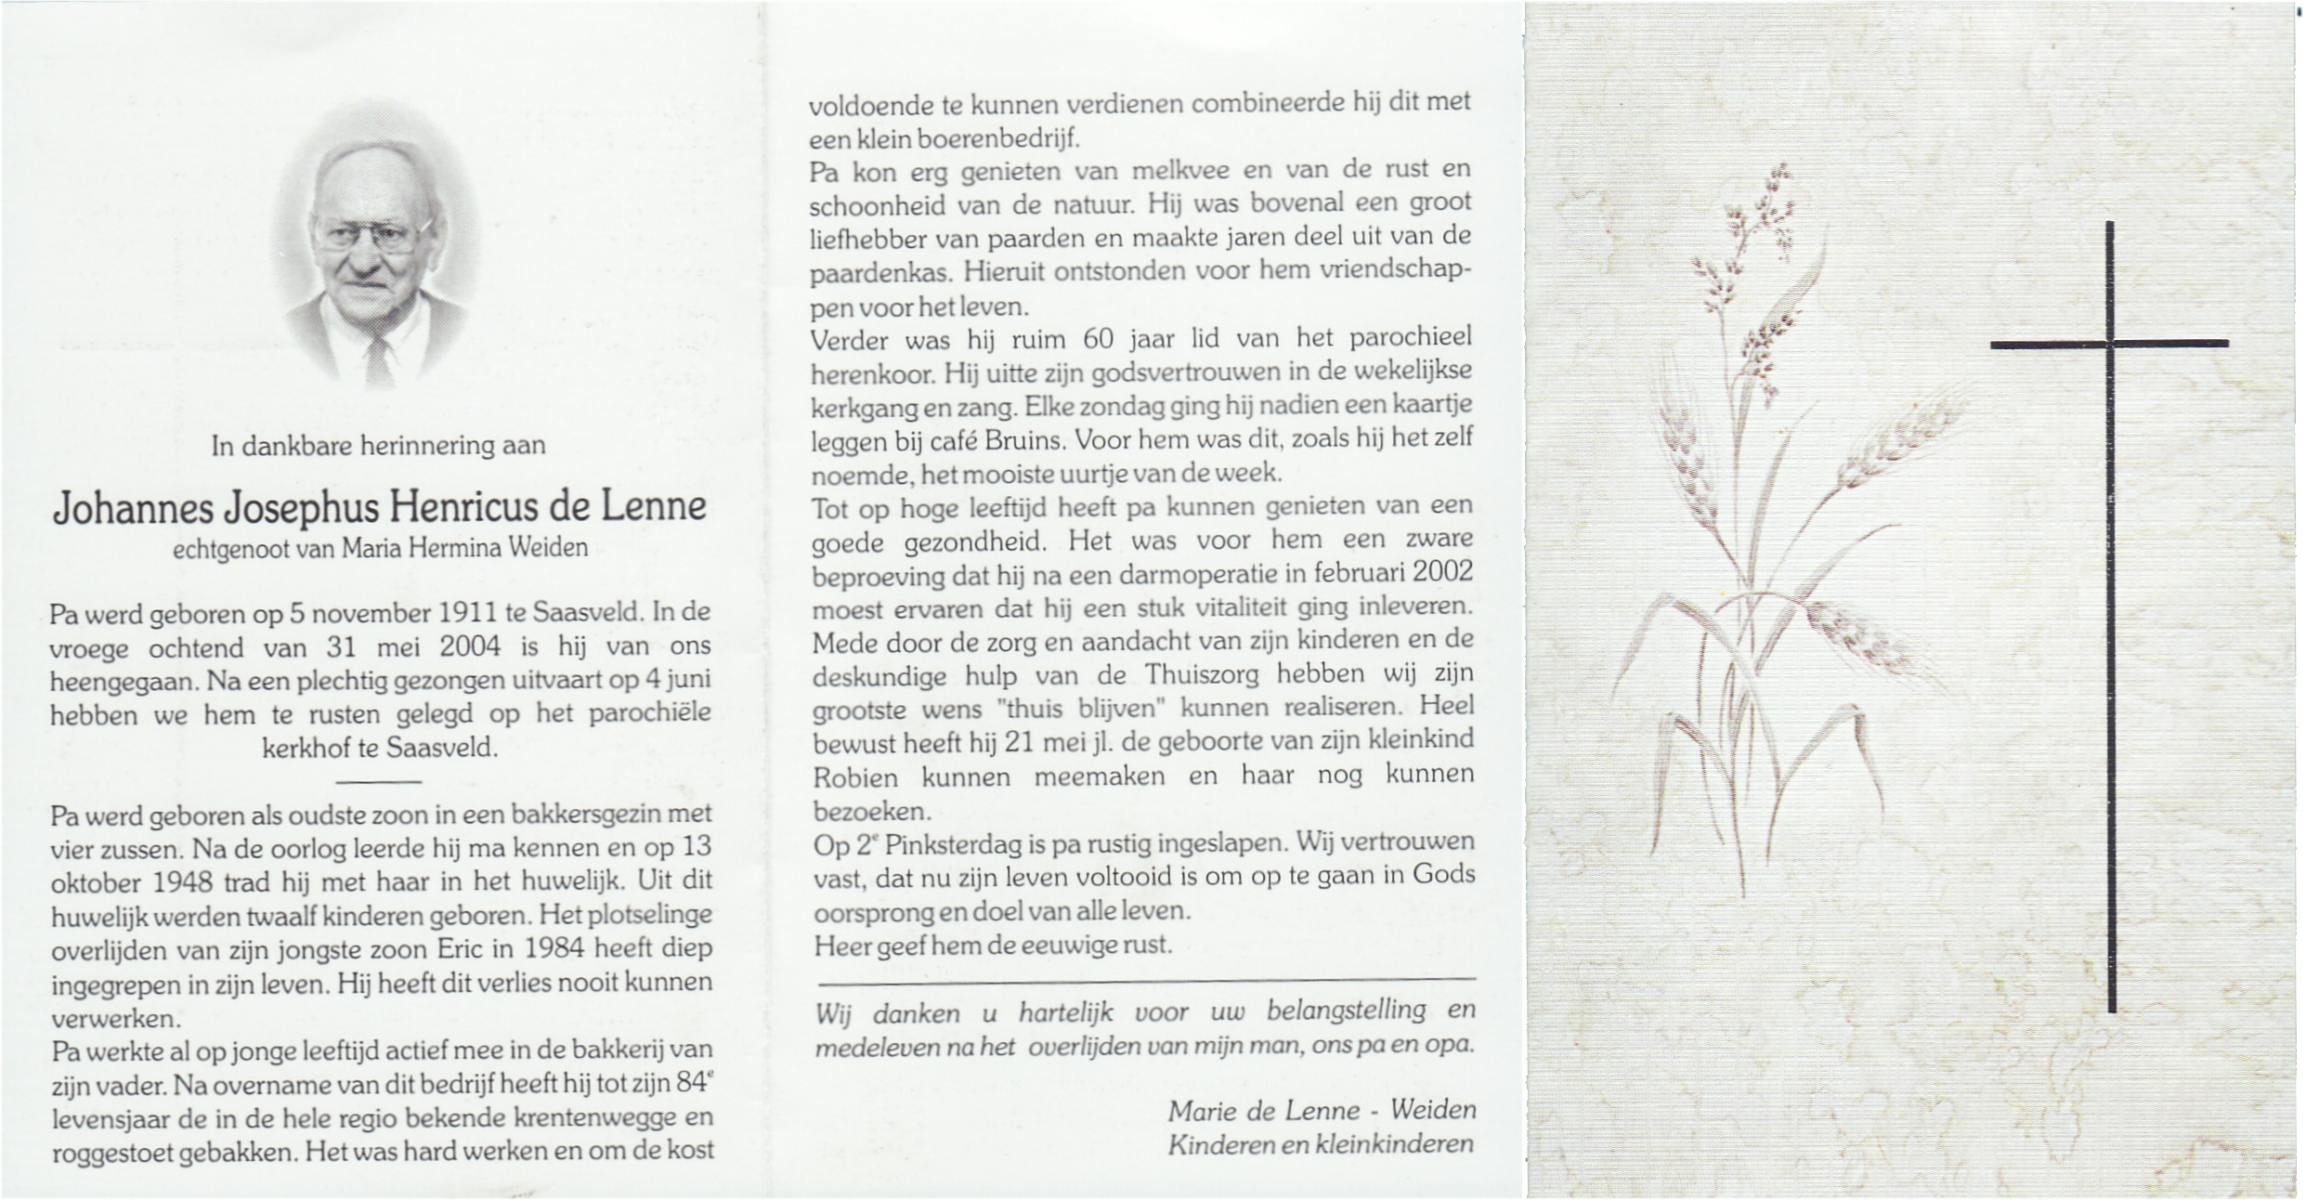 In dankbare herinnering aan
Johannes Josephus Henricus de Lenne
echtgenoot van Maria Hermina Weiden
Pa werd geboren op 5 november 1911 te Saasveld. In de
vroege ochtend van 31 mei 2004 is hij van ons
heengegaan. Na een plechtig gezongen uitvaart op 4 juni
hebben we hem te rusten gelegd op het parochiële
kerkhof te Saasveld.
Pa werd geboren als oudste zoon in een bakkersgezin met
vier zussen. Na de oorlog leerde hij ma kennen en op 13
oktober 1948 trad hij met haar in het huwelijk. Uit dit
huwelijk werden twaalf kinderen geboren. Het plotselinge
overlijden van zijn jongste zoon Eric in 1984 heeft diep
ingegrepen in zijn leven. Hij heeft dit verlies nooit kunnen
verwerken.
Pa werkte al op jonge leeftijd actief mee in de bakkerij van
zijn vader. Na overname van dit bedrijf heeft hij tot zijn 84e
levensjaar de in de hele regio bekende krentenwegge en
roggestoet gebakken. Het was hard werken en om de kost
voldoende te kunnen verdienen combineerde hij dit met
een klein boerenbedrijf.
Pa kon erg genieten van melkvee en van de rust en
schoonheid van de natuur. Hij was bovenal een groot
liefhebber van paarden en maakte jaren deel uit van de
paardenkas. Hieruit ontstonden voor hem vriendschap-
pen voor het leven.
Verder was hij ruim 60 jaar lid van het parochieel
herenkoor. Hij uitte zijn godsvertrouwen in de wekelijkse
kerkgang en zang. Elke zondag ging hij nadien een kaartje
leggen bij café Bruins. Voor hem was dit, zoals hij het zelf
noemde, het mooiste uurtje van de week.
Tot op hoge leeftijd heeft pa kunnen genieten van een
goede gezondheid. Het was voor hem een zware
beproeving dat hij na een darmoperatie in februari 2002
moest ervaren dat hij een stuk vitaliteit ging inleveren.
Mede door de zorg en aandacht van zijn kinderen en de
deskundige hulp van de Thuiszorg hebben wij zijn
grootste wens "thuis blijven" kunnen realiseren. Heel
bewust heeft hij 21 mei jl. de geboorte van zijn kleinkind
Robien kunnen meemaken en haar nog kunnen
bezoeken.
Op 2e Pinksterdag is pa rustig ingeslapen. Wij vertrouwen
vast, dat nu zijn leven voltooid is om op te gaan in Gods
oorsprong en doel van alle leven.
Heer geef hem de eeuwige rust.
Wij danken u hartelijk voor uw belangstelling en
medeleven na het overlijden van mijn man, ons pa en opa.
Marie de Lenne - Weiden
Kinderen en kleinkinderen